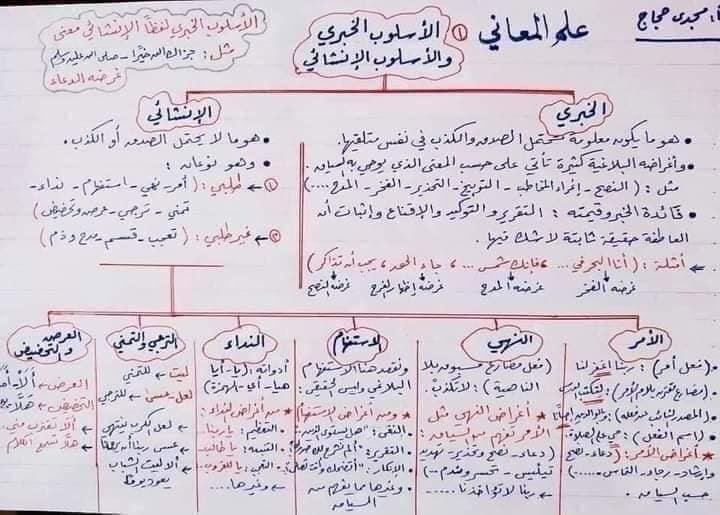 أ: مجدى حجاج
علم المعاني
① الأسلوب الخبري
والأسلوب الإنشائي
الأسلوب الخبري لفظًا الإنشائي معنى
مثل: جزاك الله خيرًا - صلى الله عليه وسلم
غرضه الدعاء
الخبري
هو ما يكون معلومة تحتمل الصدق والكذب في نفس متلقيها.
وأغراضه البلاغية كثيرة تأتي على حسب المعنى الذي يوحي به السياق.
مثل: (النصح - إغراء المخاطب - التوبيخ - التحذير - الفخر - المدح ....)
فائدة الخبر وقيمته: التقرير والتوكيد والإقناع وإثبات أن
العاطفة حقيقة ثابتة لا شك فيها.
أمثلة: (أنا البحر في ... ، فإنك شمس ... ، جاء الحق ، يجب أن تذاكر)
غرضه الفخر غرضه المدح غرضه إظهار الفرح غرضه النصح
الإنشائي
هو ما لا يحتمل الصدق أو الكذب.
وهو نوعان:
① طلبي: (أمر - نهي - استفهام - نداء -
تمني - ترجي - عرض وتحضيض)
② غير طلبي: (تعجب - قسم - مدح وذم)
الأمر
(فعل أمر): ربنا اغفر لنا
(مضارع مقترن بلام الأمر): لتكتب الدرس
(المصدر النائب عن فعله): وبالوالدين إحسانًا
(اسم الفعل): حي على الصلاة.
أغراض الأمر: (دعاء - نصح
وإرشاد - رجاء - التماس .....)
حسب السياق.
النهي
(فعل مضارع مسبوق بلا
الناهية): لا تكذب.
أغراض النهي مثل
الأمر تفهم من السياق:
(دعاء - نصح وتحذير - تهديد
تيئيس - تحسر وندم ..)
ربنا لا تؤاخذنا .....
الإستفهام
ونقصد هنا الإستفهام
البلاغي وليس الحقيقي.
ومن أغراض الإستفهام
النفي: "هل يستوي الذين"
التقرير: "ألم نشرح لك صدرك"
الإنكار:
وغيرها مما يفهم من
السياق
النداء
أدواته: (يا - أيا
هيا - أي - الهمزة)
من أغراض النداء:
التعظيم: يا ربنا.
التنبيه: يا طالب.
التعجب:
وغيرها ...
الترجي والتمني
ليت ← للتمني
لعل - عسى ← للترجي
لعل الكرب ينتهي
عسى ربنا أن
ألا ليت الشباب
يعود يومًا
العرض
والتحضيض
العرض ← ألا - أما
التحضيض ← هلا
ألا
هلا